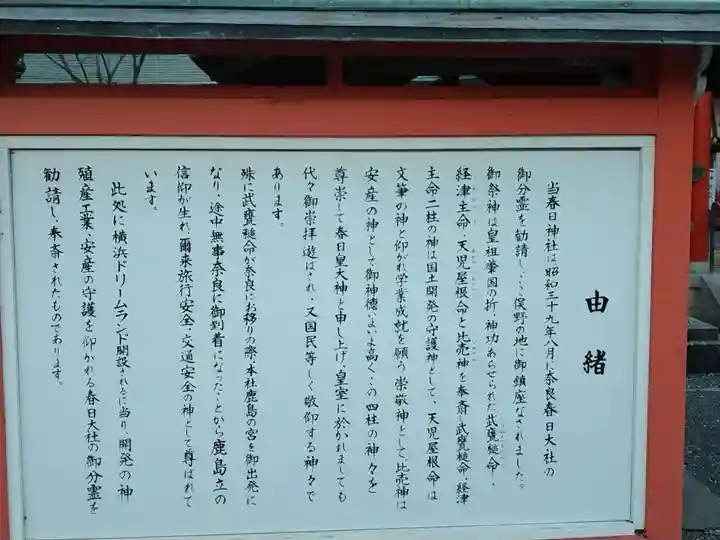 由緒
当春日神社は、昭和三十九年八月に奈良春日大社の
御分霊を勧請し、この俣野の地に御鎮座なされました。
御祭神は皇祖肇国の折、神功あらせられた武甕槌命・
経津主命・天児屋根命と比売神を奉斎、武甕槌命、経津
主命二柱の神は国土開発の守護神として、天児屋根命は
文筆の神と仰がれ学業成就を願う崇敬神として、比売神は
安産の神として御神徳いよいよ高く、この四柱の神々を
尊崇して春日皇大神と申し上げ、皇室に於かれましても
代々御崇拝遊ばされ、又国民等しく敬仰する神々で
あります。
殊に武甕槌命が奈良にお移りの際、本社鹿島の宮を御出発に
なり、途中無事奈良に御到着になったことから鹿島立の
信仰が生れ、爾来旅行安全・交通安全の神として尊ばれて
います。
此処に横浜ドリームランド開設されるに当り、開発の神
殖産工業、安産の守護を仰がれる春日大社の御分霊を
勧請し、奉斎されたものであります。